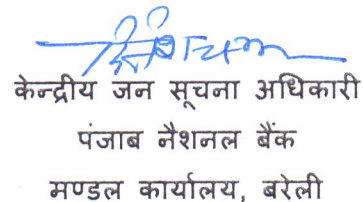 केन्द्रीय जन सूचना अधिकारी
पंजाब नैशनल बैंक
मण्डल कार्यालय, बरेली